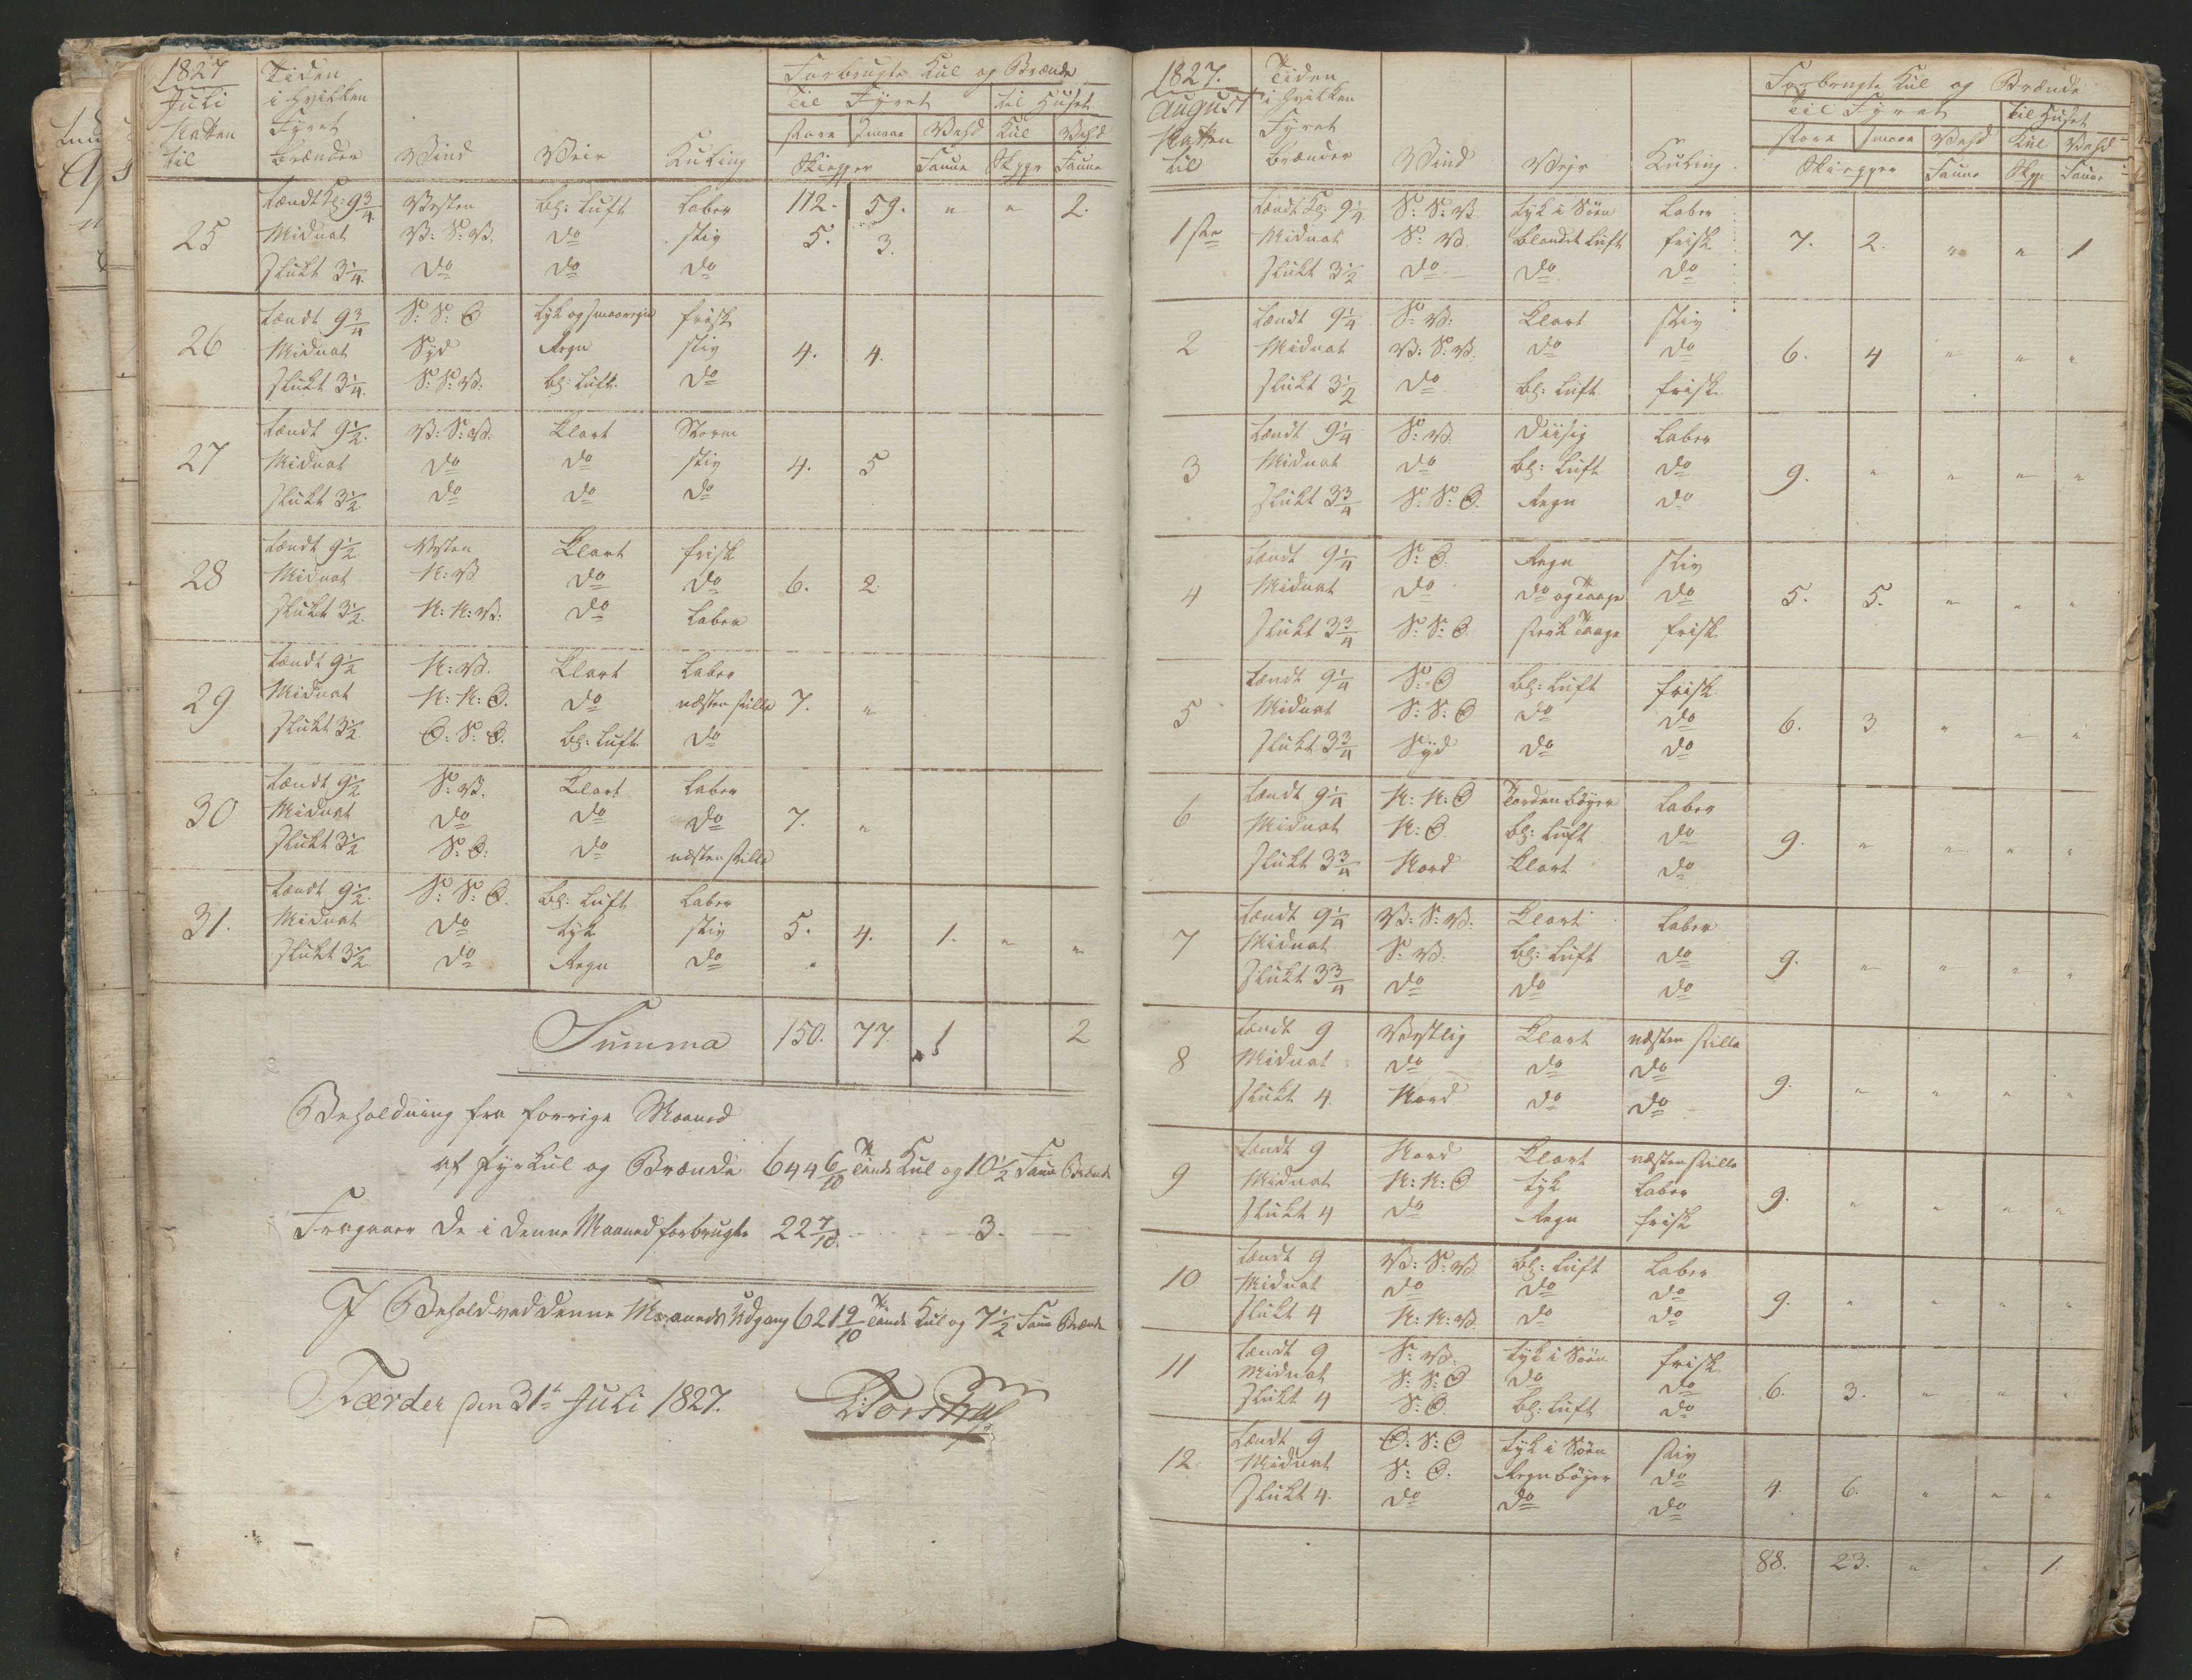 1827 Tiden Forbrugte Kul og Brænde
Juli i hvilken Til Fyret til Huset
Natten Fyret store smaae Vehd Kul Vehd
til brænder Wind Veir Kuling Skiepper Faune Skppr Faune
tændt Kl: 9 3/4 Vesten bl: Luft laber 112. 59. " " 2.
25 Midnat V: S: V. do stiv 5. 3.
slukt 3 1/4. do do do
tændt 9 3/4 S: S: O tyk og smaaregn frisk
26 Midnat Syd Regn stiv 4. 4.
slukt 3 1/4. S: S: V. bl: Luft. do
tændt 9 1/2. V: S: V. Klart Storm
27 Midnat do do stiv 4. 5
slukt 3 1/2 do do do
tændt 9 1/2 Vesten Klart frisk
28 Midnat N: V do do 6. 2.
slukt 3 1/2. N: N: V: do laber
tændt 9 1/2 N: V. Klart laber
29 Midnat N: N: O. do næsten stille 7. "
slukt 3 1/2 O: S: O. bl: Luft do
tændt 9 1/2 S: V. Klart laber
30 Midnat do do do 7. "
slukt 3 1/2 S: O: do næsten stille
tændt 9 1/2. S: S: O. bl: Luft laber
31. Midnat do tyk stiv 5. 4. 1. " "
slukt 3 1/2 do Regn do
Summa 150. 77. 1 2
Beholdning fra forrige Maaned
af fyrkul og Brænde 644 6/10 Tønde Kul og 10 1/2 Faun Brænde
Fragaaer de i denne Maaned forbrugte 22 7/10. - - - - 3. -
I Behold ved denne Maaneds Udgang 621 9/10 Tønde Kul og 7 1/2 Faun Brænde
Færder den 31te Juli 1827.
1827. Tiden Forbrugte Kul og Brænde
August i hvilken Til Fyret til Huset
Natten Fyret store smaae Vehd Kul Vehd
til brænder Wind Vejr Kuling Skiepper Faune Skpp: Faune
tændt Kl: 9 1/4 S: S: V. tyk i Søen laber
1ste Midnat S: V. blandet Luft frisk 7. 2. " " 1
slukt 3 1/2 do do do
tændt 9 1/4 S: V: Klart stiv
2 Midnat V: S: V. do do 6. 4 " " "
slukt 3 1/2 do bl: Luft. frisk
tændt 9 1/4 S: V. Diisig laber
3 Midnat do bl: Luft do 9. " " " "
slukt 3 3/4 S: S: O. Regn do
tændt 9 1/4 S: O. Regn stiv
4 Midnat do do og Taage do 5. 5. " " "
slukt 3 3/4 S: S: O. sterk Taage frisk
tændt 9 1/4 S: O bl: Luft frisk
5 Midnat S: S: O do do 6. 3 " " "
slukt 3 3/4 Syd do do
tændt 9 1/4 N: N: O Tordenbøyer laber
6 Midnat N: O. bl: Luft do 9. " " " "
slukt 3 3/4 Nord Klart do
tændt 9 1/4 V: S: V. Klart laber
7 Midnat S: V. bl: Luft do 9. " " " "
slukt 3 3/4 do do do
tændt 9 Vestlig Klart næsten stille
8 Midnat do do do 9. " " " "
slukt 4. Nord do do
tændt 9 Nord Klart næsten stille
9 Midnat N: N: O tyk laber 9. " " " "
slukt 4 do Regn frisk
tændt 9 V: S: V bl: Luft laber
10 Midnat do do do 9. " " " "
slukt 4 N: N: V. do do
tændt 9 S: V. tyk i Søen frisk
11 Midnat S: S: O do do 6. 3. " " "
slukt 4 S: O. bl: Luft do
tændt 9 O: S: O tyk i Søen stiv
12 Midnat S: O. Regnbøyer do 4. 6. " " "
slukt 4. do do do
88. 23. " " 1.